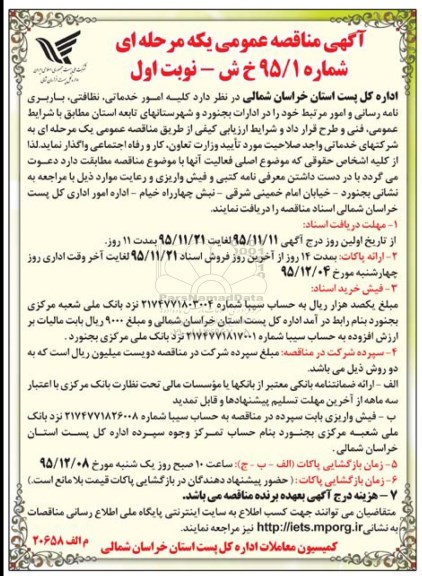 آگهی مناقصه عمومی یکه مرحله ای
شماره ۹۵/۱ خ ش – نوبت اول
اداره کل پست استان خراسان شمالی در نظر دارد کلیه امور خدماتی، نظافتی، باربری
نامه رسانی و امور مرتبط خود را در ادارات بجنورد و شهرستانهای تابعه استان مطابق با شرایط
عمومی، فنی و طرح قرار داد و شرایط ارزیابی کیفی از طریق مناقصه عمومی یک مرحله ای به
شرکتهای خدماتی واجد صلاحیت مورد تأیید وزارت تعاون، کار و رفاه اجتماعی واگذار نماید. لذا
از کلیه اشخاص حقوقی که موضوع اصلی فعالیت آنها با موضوع مناقصه مطابقت دارد دعوت
می گردد با در دست داشتن معرفی نامه کتبی و فیش واریزی و رعایت موارد ذیل با مراجعه به
نشانی بجنورد - خیابان امام خمینی شرقی - نبش چهارراه خیام - اداره امور اداری کل پست
خراسان شمالی اسناد مناقصه را دریافت نمایند.
۱- مهلت دریافت اسناد:
از تاریخ اولین روز درج آگهی ۹۵/۱۱/۱۱ لغایت ۹۵/۱۱/۲۱ بمدت ۱۱ روز.
۲- ارائه پاکات: بمدت ۱۴ روز از آخرین روز فروش اسناد ۹۵/۱۱/۲۱ لغایت آخر وقت اداری روز
چهارشنبه مورخ ۹۵/۱۲/۰۴
۳- فیش خرید اسناد:
مبلغ یکصد هزار ریال به حساب سیبا شماره ۲۱۷۴۷۷۱۸۰۳۰۰۴ نزد بانک ملی شعبه مرکزی
بجنورد بنام رابط در آمد اداره کل پست استان خراسان شمالی و مبلغ ۹۰۰۰ ریال بابت مالیات بر
ارزش افزوده به حساب سیبا شماره ۲۱۷۴۷۷۱۸۱۷۰۰۱ نزد بانک ملی مرکزی بجنورد.
۴- سپرده شرکت در مناقصه: مبلغ سپرده شرکت در مناقصه دویست میلیون ریال است که به
دو روش ذیل می باشد.
الف - ارائه ضمانتنامه بانکی معتبر از بانکها یا مؤسسات مالی تحت نظارت بانک مرکزی با اعتبار
سه ماهه از آخرین مهلت تسلیم پیشنهادها و قابل تمدید
ب - فیش واریزی بابت سپرده در مناقصه به حساب سیبا شماره ۲۱۷۴۷۷۱۸۲۶۰۰۸ نزد بانک
ملی شعبه مرکزی بجنورد بنام حساب تمرکز وجوه سپرده اداره کل پست استان
خراسان شمالی.
۵- زمان بازگشایی پاکات (الف - ب - ج): ساعت ۱۰ صبح روز یک شنبه مورخ ۹۵/۱۲/۰۸
۶- زمان بازگشایی پاکات: (حضور پیشنهاد دهندگان در بازگشایی پاکات قیمت بلامانع است.)
۷ - هزینه درج آگهی بعهده برنده مناقصه می باشد.
متقاضیان می توانند جهت کسب اطلاع به سایت اینترنتی پایگاه ملی اطلاع رسانی مناقصات
به نشانی http://iets.mporg.ir نیز مراجعه نمایند.
م الف ۲۰۶۵۸
کمیسیون معاملات اداره کل پست استان خراسان شمالی